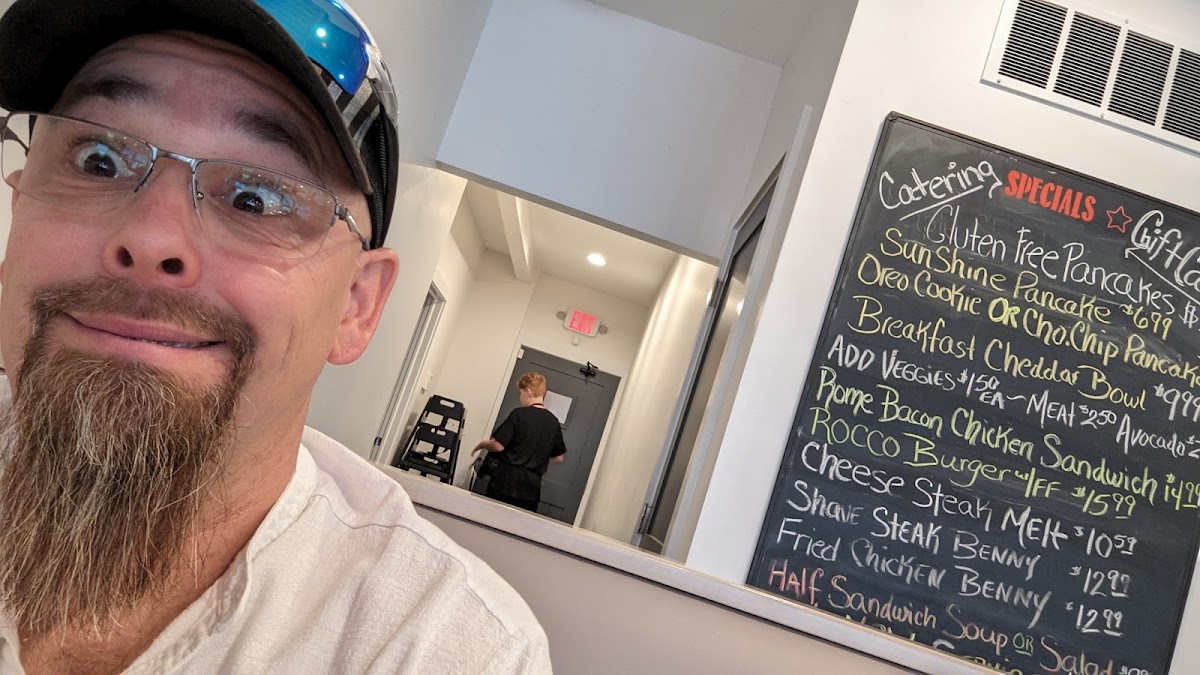 Catering SPECIALS ☆ Gift
Gluten Free Pancakes
SunShine Pancake $6.99
Oreo Cookie OR Cho.Chip Pancake
Breakfast Cheddar Bowl $9.99
ADD VEGGIES $1.50 EA ~ MEAT $2.50 Avocado
Rome Bacon Chicken Sandwich $14.99
ROCCO Burger w/FF $15.99
Cheese Steak MElt $10.59
Shave STEAK BENNY $12.99
Fried Chicken BENNY $12.99
HAlf Sandwich Soup OR Salad
EXIT